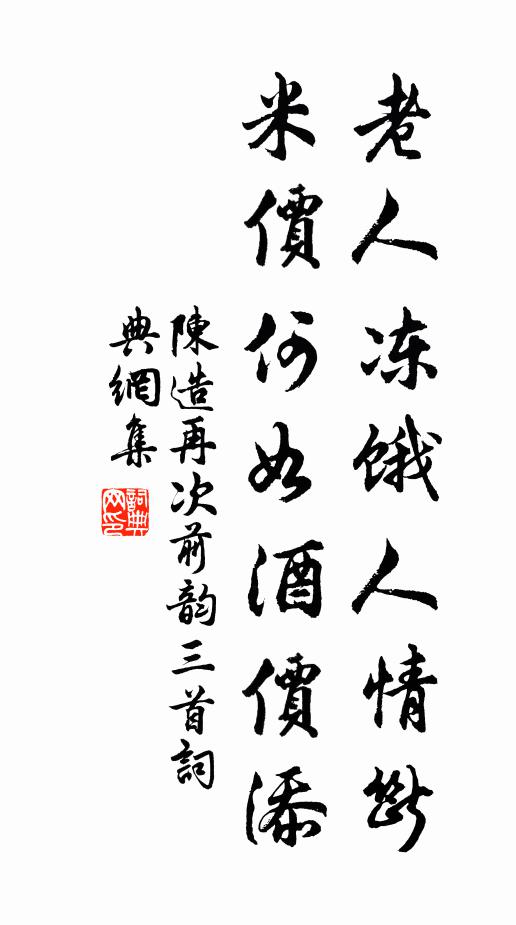 老人冻饿人情断
米價何如酒價添
陳造再次前韵三首詞
典網集
詞典網印